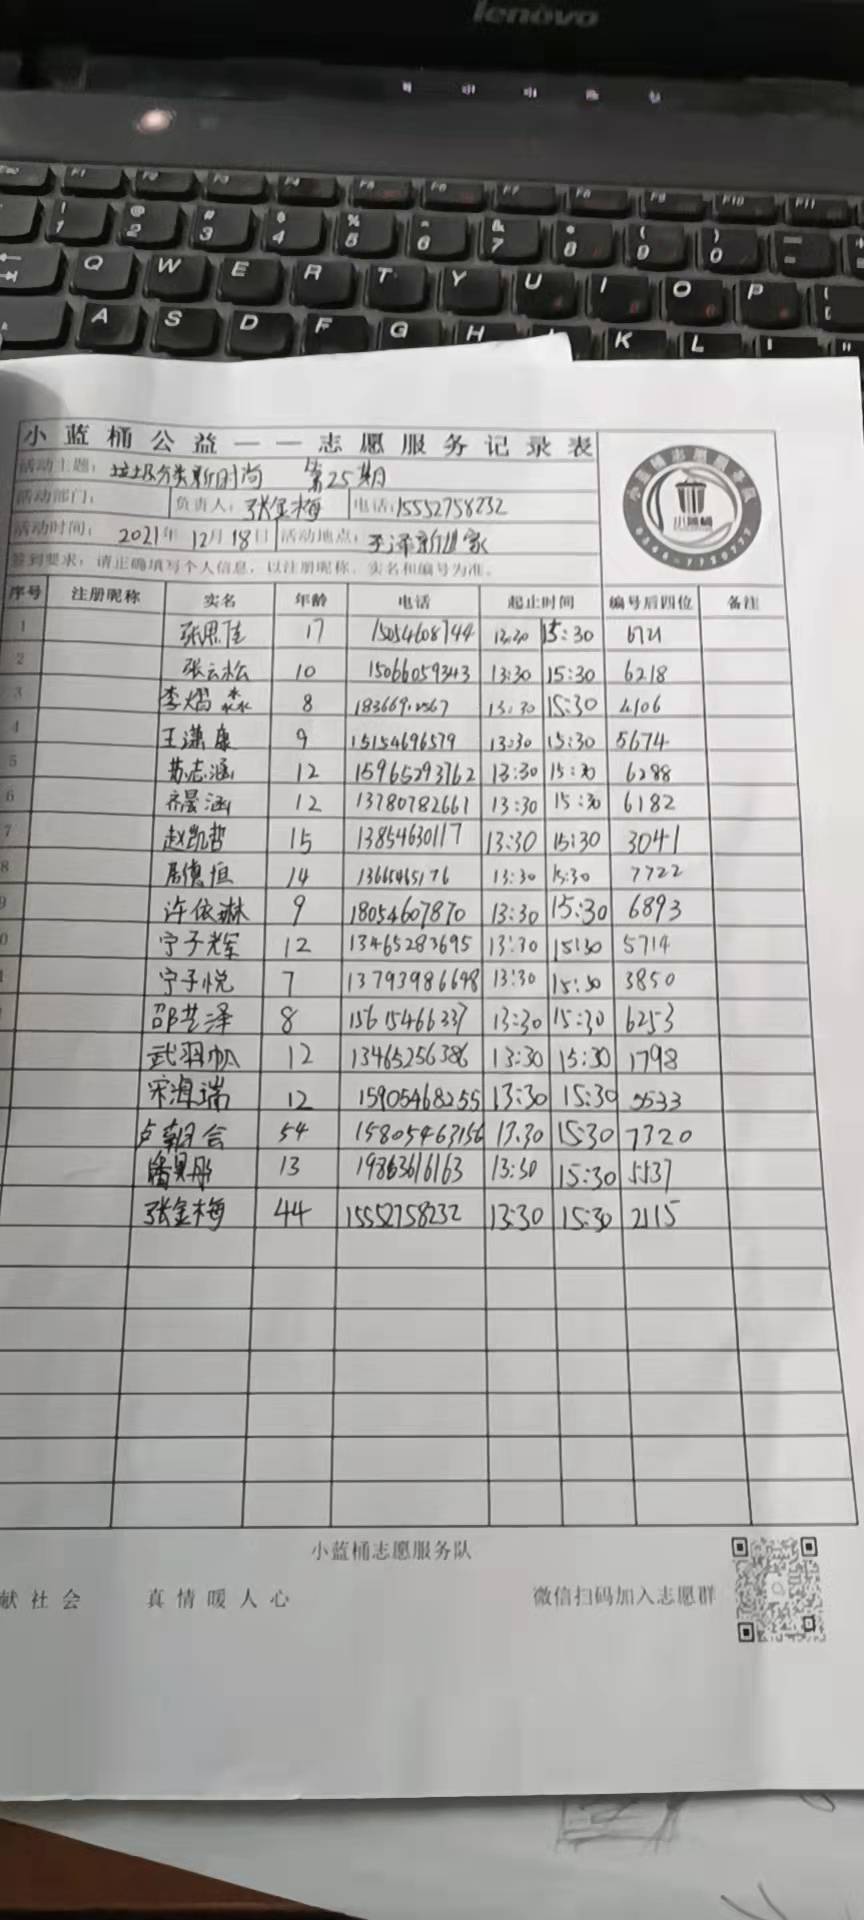 lenovo
Esc F1 F2 F3 F4 F5 F6 F7 F8 F9 F10 F11
! 1 @ 2 # 3 $ 4 % 5 ^ 6 & 7 * 8 ( 9 ) 0
Q W E R T Y U I O P
A S D F G H K L
小蓝桶公益——志愿服务记录表
活动主题: 垃圾分类新时尚 第25期
活动部门: 负责人: 张金梅 电话: 15552758232
活动时间: 2021年12月18日 活动地点:
签到要求: 请正确填写个人信息, 以注册昵称、实名和编号为准。
小蓝桶志愿服务队
小蓝桶
0546-7720777
序号 注册昵称 实名 年龄 电话 起止时间 编号后四位 备注
1 张思佳 17 15054608744 13:30 15:30 6721
2 张云松 10 15066059343 13:30 15:30 6218
3 李熠淼 8 13:30 15:30
4 王潇康 9 15154696579 13:30 15:30 5674
5 苏志涵 12 15965293762 13:30 15:30 6288
6 齐晨涵 12 13780782661 13:30 15:30 6182
7 赵凯哲 15 13854630117 13:30 15:30 3041
8 14 13665465176 13:30 15:30 7722
9 许依琳 9 18054607870 13:30 15:30 6893
0 宁子光军 12 13465283695 13:30 15:30 5714
宁子悦 7 13793986698 13:30 15:30 3850
邵艺泽 8 15615466337 13:30 15:30 6253
武羽帆 12 13465256386 13:30 15:30 1798
宋海瑞 12 15905468255 13:30 15:30 5533
卢朝会 54 15805463156 13:30 15:30 7320
潘昊彤 13 19863616163 13:30 15:30 5537
张金梅 44 15552758232 13:30 15:30 2115
小蓝桶志愿服务队
献社会 真情暖人心 微信扫码加入志愿群